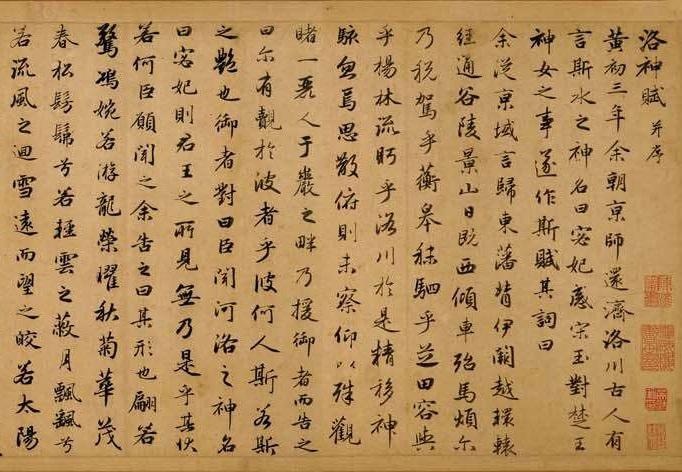 洛神賦 并序
黄初三年余朝京師還濟洛川古人有
言斯水之神名曰宓妃感宋玉對楚王
神女之事遂作斯賦其詞曰
余從京域言歸東藩背伊闕越轘轅
經通谷陵景山日既西傾車殆馬煩尔
乃税駕乎蘅皋秣駟乎芝田容與
乎楊林流眄乎洛川於是精移神
駭忽焉思散俯則未察仰以殊觀
睹一麗人于巖之畔乃援御者而告之
曰尔有覿於彼者乎彼何人斯若斯
之艷也御者對曰臣聞河洛之神名
曰宓妃則君王之所見無乃是乎其狀
若何臣願聞之余告之曰其形也翩若
驚鴻婉若游龍榮曜秋菊華茂
春松髣髴兮若輕雲之蔽月飄飖兮
若流風之迴雪遠而望之皎若太陽